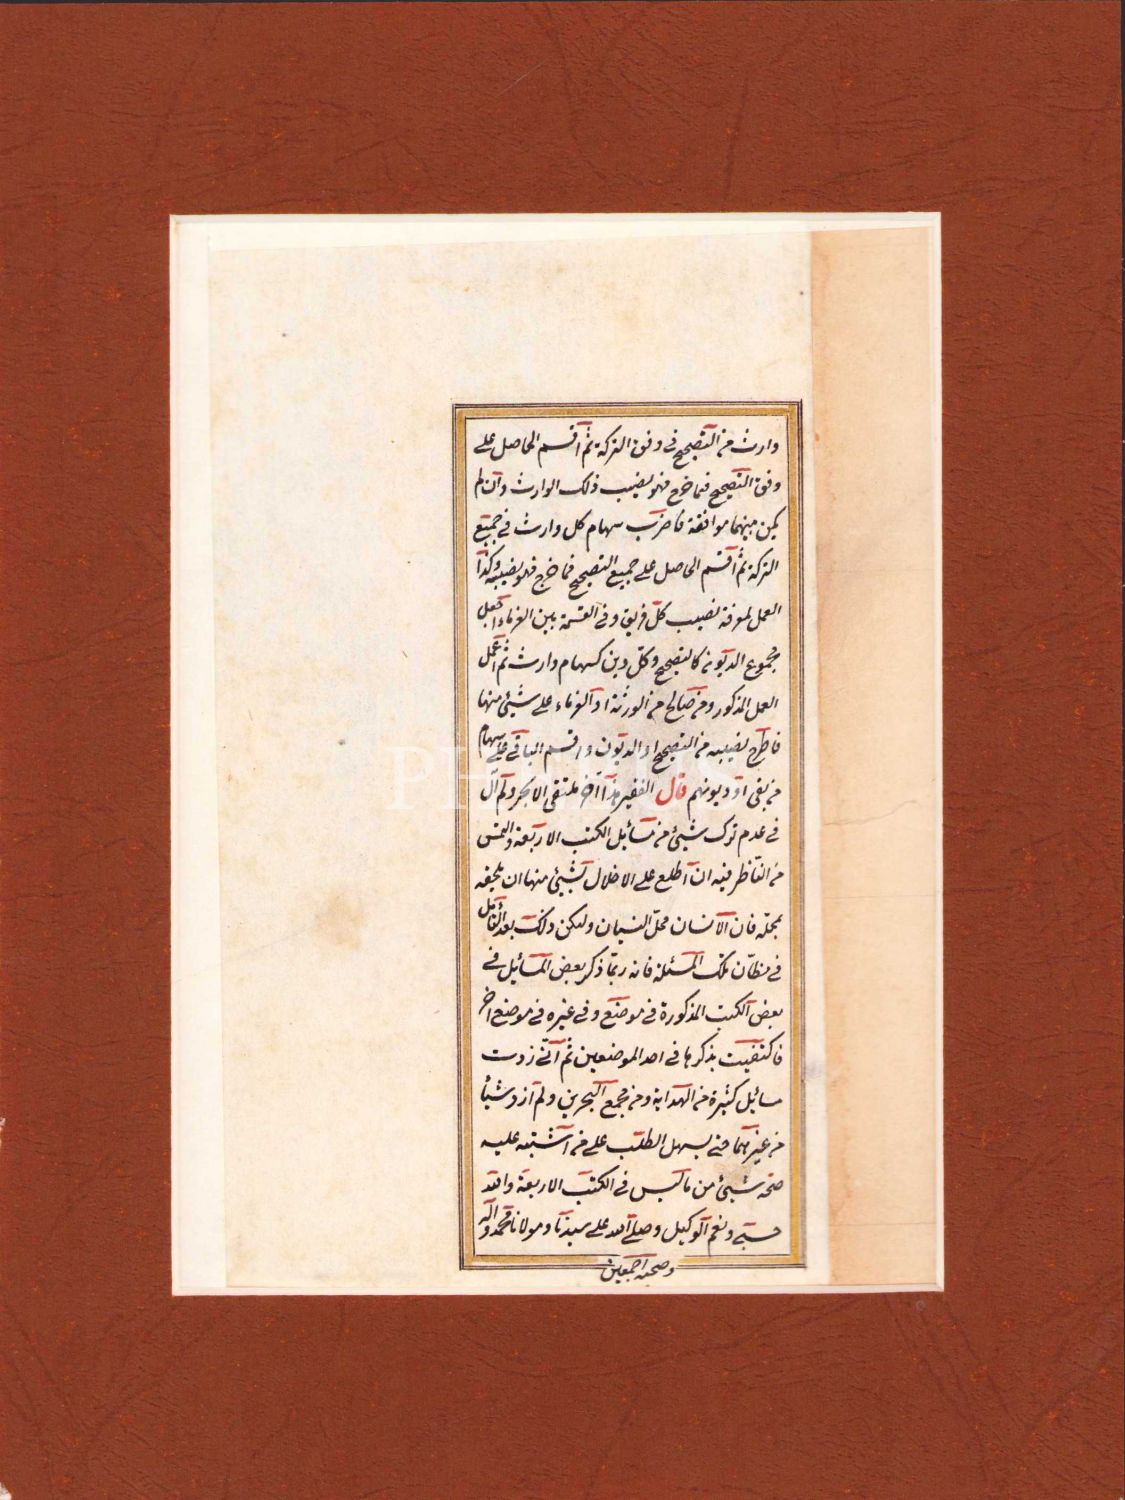 وارث من التصحيح في وفق التركة ثم اقسم الحاصل على
وفق التصحيح فما خرج فهو نصيب ذلك الوارث وان لم
يكن بينهما موافقة فاضرب سهام كل وارث في جميع
التركة ثم اقسم الحاصل على جميع التصحيح فما خرج فهو نصيبه وكذا
العمل لمعرفة نصيب كل فريق وفي القسمة بين الغرماء اجعل
مجموع الديون كالتصحيح وكل دين كسهام وارث ثم اعمل
العمل المذكور ومن صالح من الورثة او الغرماء على شيئ منها
فاطرح نصيبه من التصحيح او الديون واقسم الباقي على سهام
من بقى او ديونهم قال الفقير هذا آخر ملتقى الابحر ولم آل
في عدم ترك شيئ من مسائل الكتب الاربعة والتمس
من الناظر فيه ان اطلع على الاخلال بشيئ منها ان يلحقه
بمحله فان الانسان محل النسيان وليكن ذلك بعد التأمل
في مظان تلك المسئلة فانه ربما ذكر بعض المسائل في
بعض الكتب المذكورة في موضع وفي غيره في موضع اخر
فاكتفيت بذكرها في احد الموضعين ثم انى زدت
مسائل كثيرة من الهداية ومن مجمع البحرين ولم ازد شيأ
من غيرهما حتى يسهل الطلب على من اشتبه عليه
صحة شيئ من ما ليس في الكتب الاربعة والله
حسبى ونعم الوكيل وصلى الله على سيدنا ومولانا محمد وآله
وصحبه اجمعين
PH